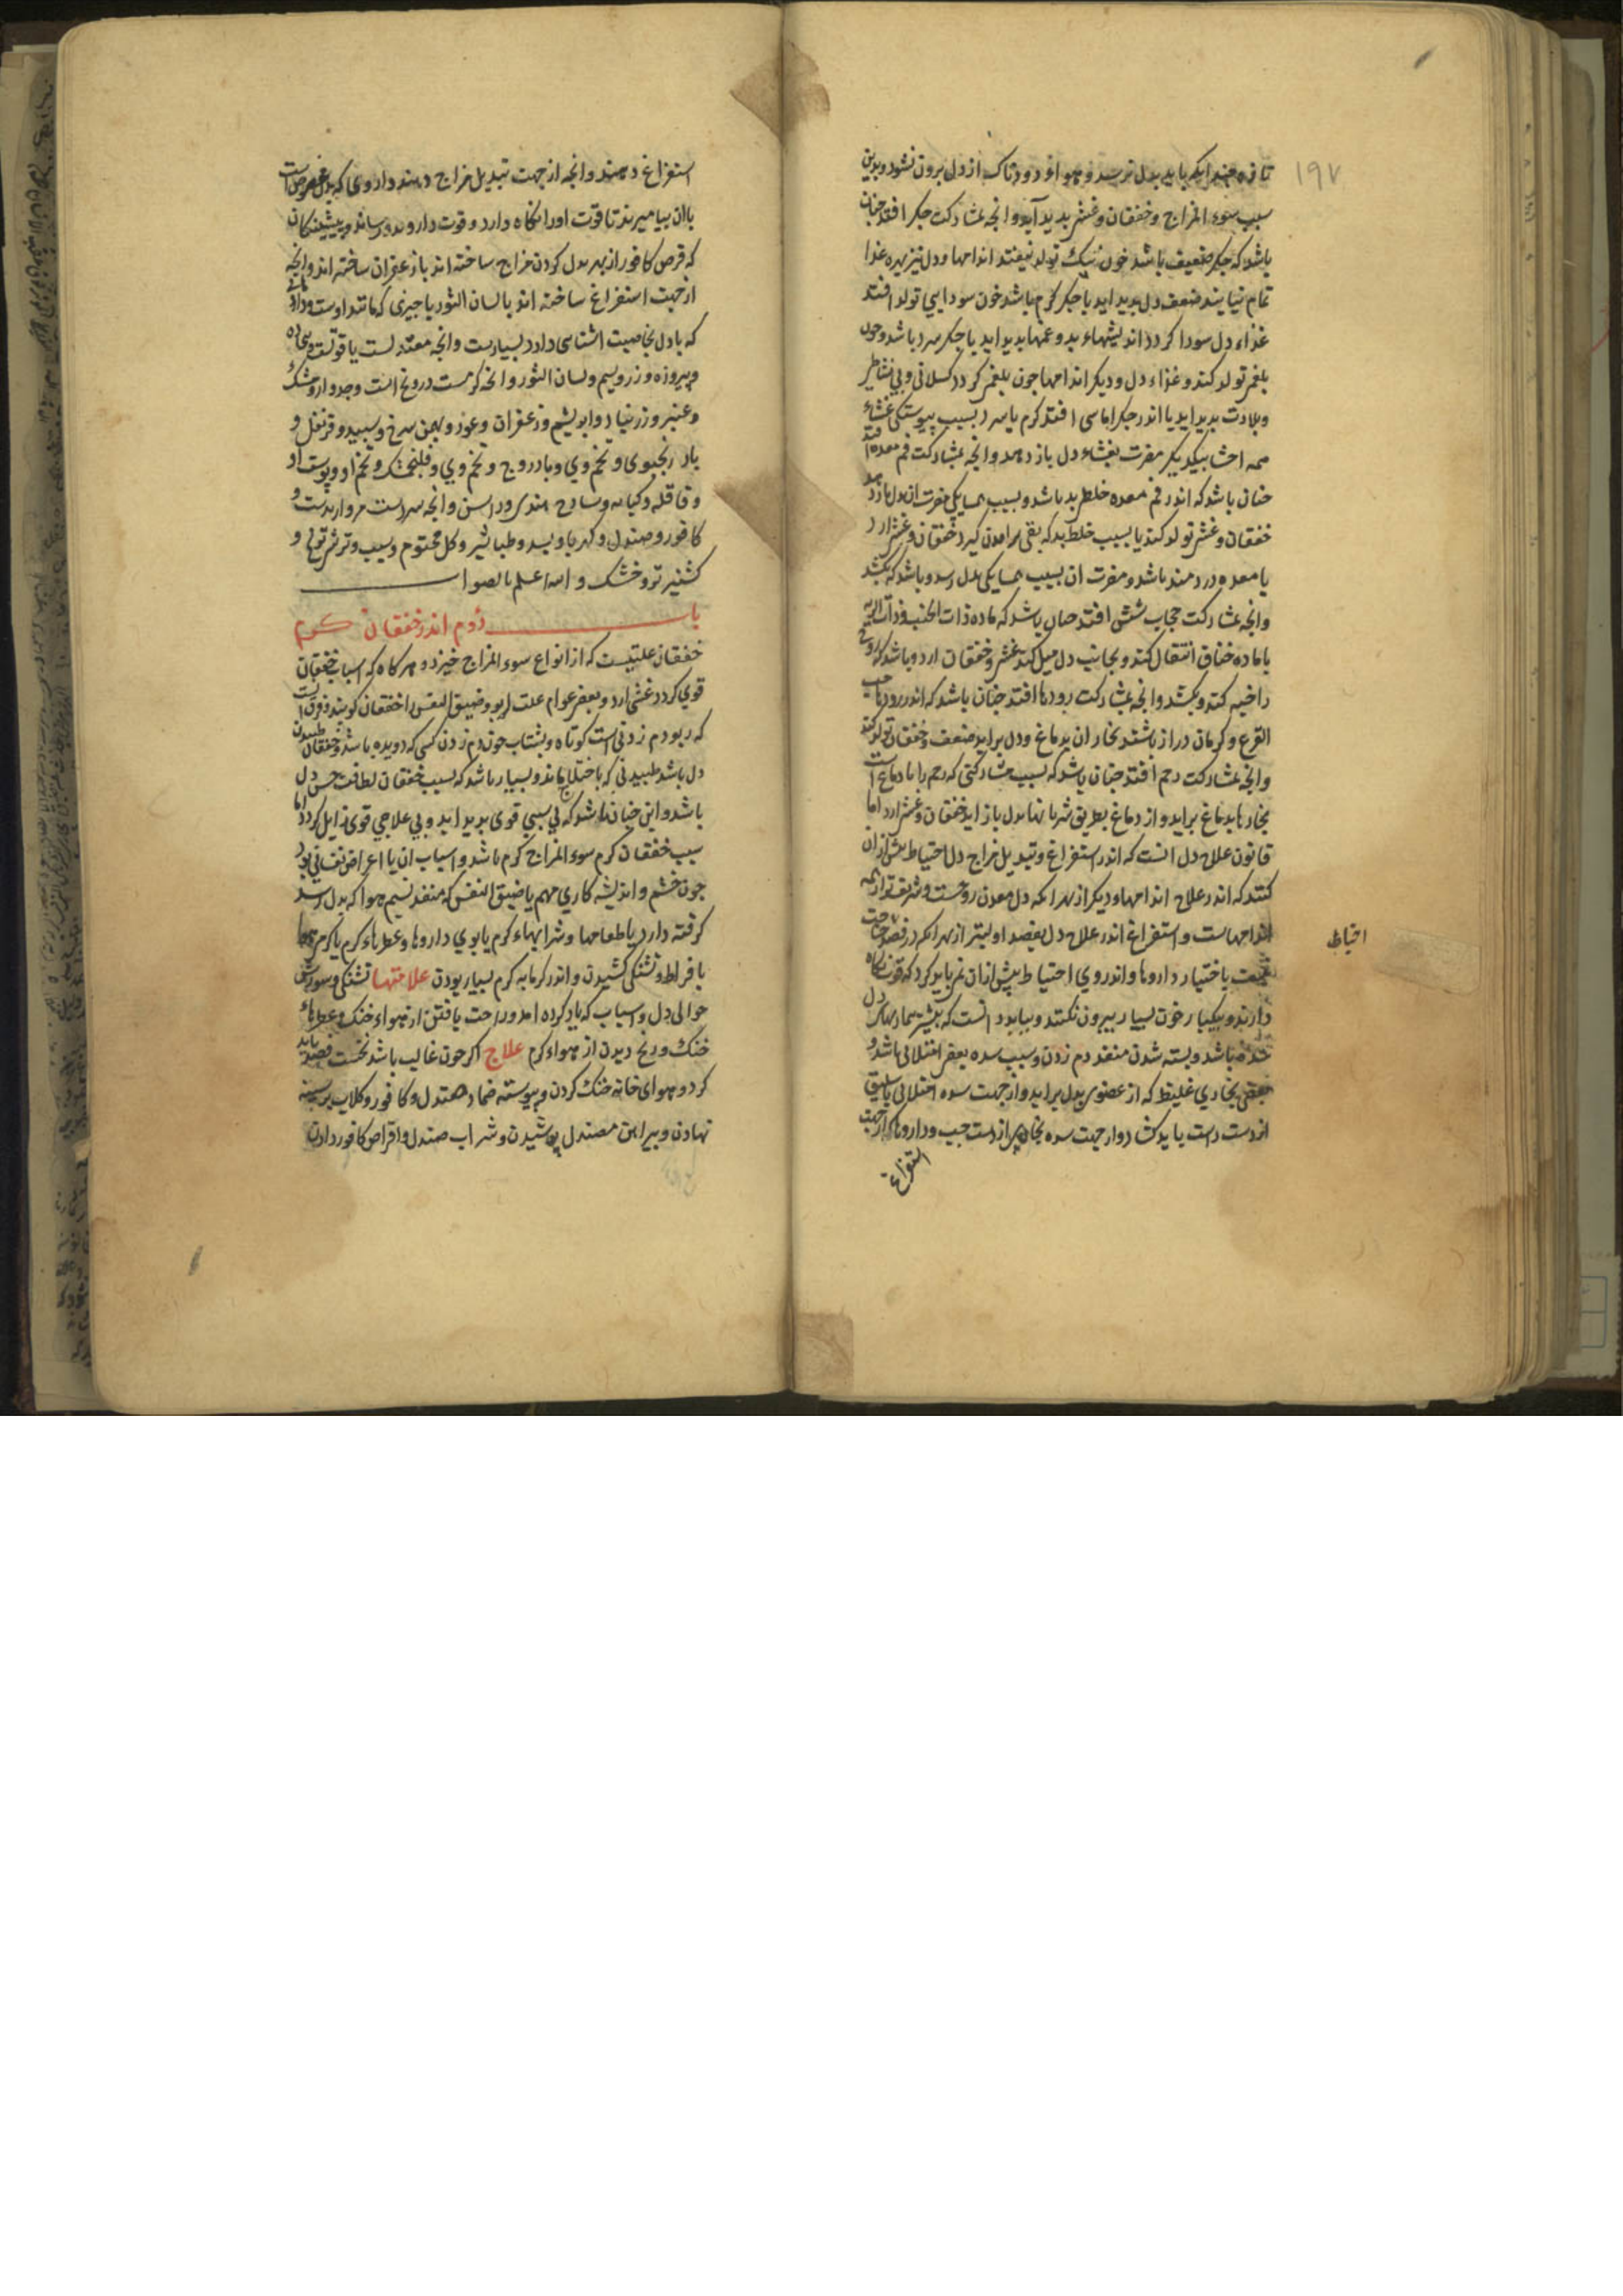 ۱۹۷
تازه چندانکه باید بدل نرسد و هواء دودناک از دل برون نشود و بدین
سبب سوء المزاج و خفقان و غشی بدید آید و انجه بمشارکت جکر افتد جنان
باشد که جکر ضعیف باشد خون نیک تولد نیفتد اندامها و دل نیز بهره غذا
تمام نیابند ضعف دل بدید اید یا جکر کرم باشد خون سودایی تولد افتد
غذاء دل سودا کردد اندیشهاء بد و غمها بدید اید یا جکر سرد باشد و خون
بلغمی تولد کند و غذاء دل و دیکر اندامها جون بلغمی کردد کسلانی و بی نشاطی
و بلادت بدید اید یا اندر جکر اماسی افتد کرم یا سرد بسبب پیوستکی غشاء
همه احشا بیکدیکر مضرت بغشاء دل باز دهد و انجه بمشارکت فم معده افتد
جنان باشد که اندر فم معده خلطی بد باشد و بسبب همسایکی مضرت ان بدل باز دهد
خفقان و غشی تولد کند یا بسبب خلط بد که بقی برامدن کیرد خفقان و غشی ارد
یا معده دردمند باشد و مضرت ان بسبب همسایکی بدل رسد و باشد که بکشد
وانجه بمشارکت حجاب و شش افتد جنان باشد که ماده ذات الجنب و ذات الریه
یا ماده خناق انتقال کند و بجانب دل میل کند غشی و خفقان ارد و باشد که روح
را خبه کند و بکشد وانجه بمشارکت رودها افتد جنان باشد که اندر رودها حب
القرع و کرمان دراز باشند بخار ان بدماغ و دل براید ضعف و خفقان تولد کند
وانجه بمشارکت رحم افتد جنان باشد که بسبب مشارکتی که رحم را با دماغ است
بخارها بدماغ براید و از دماغ بطریق شریانها بدل باز اید خفقان و غشی ارد اما
قانون علاج دل انست که اندر استفراغ و تبدیل مزاج دل احتیاط بیش از ان
کنند که اندر علاج اندامها و دیکر از بهر انکه دل معدن روحست و شریفتر از همه
اندامهاست و استفراغ اندر علاج دل بفصد اولیتر از بهر انکه در فصد حاجت
نیست باختیار داروها و اندروی احتیاط بیش از ان نمی باید کرد که قوت نکاه
دارند و بیکبار خون بسیار بیرون نکنند و بباید دانست که بیشتر بیماریهاء دل
سده باشد و بسته شدن منفذ دم زدن و سبب سده بعضی امتلائی باشد و
بعضی بخاری غلیظ که از عضوی بدل براید و از جهت سده امتلائی باسلیق
از دست راست باید کشاد و از جهت سده بخاری از دست جب و داروها که از جهت
استفراغ
احتیاط
استفراغ دهند و انجه از جهت تبدیل مزاج دهند داروی که بدل مخصوص است
با ان بیامیزند تا قوت اورا نکاه دارد و قوت دارو بدو رساند و پیشینکان
که قرص کافور از بهر بدل کردن مزاج ساخته اند باز عفران ساخته اند و انجه
از جهت استفراغ ساخته اند با لسان الثور یا جیزی که مانند اوست و داروهایی
که با دل بخاصیت اشنایی دارد بسیارست و انجه معتدلست یاقوتست و بیجاده
و پیروزه و زر و سیم و لسان الثور و انجه کرمست درونج است و جدوار و مشک
و عنبر و زرنباد و ابریشم و زعفران و عود و بهمن سرخ و سپید و قرنفل و
بادرنجبوی و تخم وی و بادروج و تخم وی و فلنجمشک و تخم او و پوست اترج
و قاقله و کبابه و سادج هندی و راسن و انجه سردست مرواریدست و
کافور و صندل و کهربا و بسد و طباشیر و کل مختوم و سیب و ترشی ترنج و
کشنیز تر و خشک و الله اعلم بالصواب
باب دوم اندر خفقان کرم
خفقان علتیست که از انواع سوء المزاج خیزد و هرکاه که اسباب خفقان
قوی کردد غشی ارد و بعضی عوام علت ربو و ضیق النفس را خفقان کویند و فرق است
که ربو دم زدنی است کوتاه و بشتاب جون دم زدن کسی که دویده باشد و خفقان طپیدن
دل باشد طپیدنی که باختلاج ماند و بسیار باشد که بسبب خفقان لطافت حس دل
باشد و این جنان باشد که بی سببی قوی بدید اید و بی علاجی قوی زایل کردد اما
سبب خفقان کرم سوء المزاج کرم باشد و اسباب ان یا اعراض نفسانی بود
جون خشم و اندیشه کاری مهم یا ضیق النفس که منفذ نسیم هوا که بدل رسد
کرفته دارد یا طعامها و شرابهاء کرم یا بوی داروها و عطرهاء کرم یا کرمی هوا
بافراط و تشنکی کشیدن و اندر کرمابه کرم بسیار بودن علامتها تشنکی و سوزش
حوالی دل و اسباب که یاد کرده امد و راحت یافتن از هواء خنک و عطرهاء
خنک و رنج دیدن از هواء کرم علاج اکر خون غالب باشد نخست فصد باید
کرد و هوای خانه خنک کردن و پیوسته ضماد صندل و کافور و کلاب بر سینه
نهادن و پیراهن مصندل پوشیدن و شراب صندل و اقراص کافور دادن